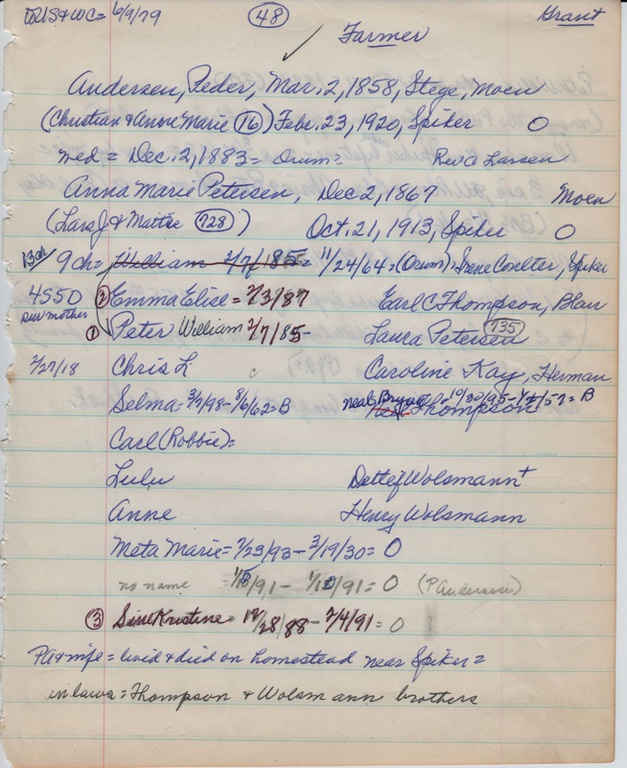 6/9/79 48 Grant
Farmer
Andersen, Peder, Mar. 2, 1858, Stege, Moen
(Christian & Anne Marie 16) Feb. 23, 1920, Spiker O
med = Dec. 2, 1883 = Orum? Rev A Larsen
Anna Marie Petersen, Dec 2, 1867 Moen
(Lars J & Mattie 728) Oct. 21, 1913, Spiker O
13ch 9ch = William 2/7/85 = 11/24/64 = (Orum) = Irene Coulter, Spiker
4S5D 2 Emma Elise = 2/3/87 Earl C Thompson, Blair
sur mother 1 Peter William 2/7/85 - Laura Petersen 735
2/27/18 Chris L Caroline Kay, Herman
Selma = 3/7/98 - 8/6/62 = B Neal Thompson = B
Carl (Robbie) =
Lulu Detlef Wolsmann +
Anne Henry Wolsmann
Meta Marie = 7/23/93 - 3/19/30 = O
no name /91 - /91 = O (P Andersen)
3 Sine Kristine = 12/28/88 - 2/4/91 = O
Pa & wife = lived & died on homestead near Spiker =
in laws = Thompson & Wolsmann brothers